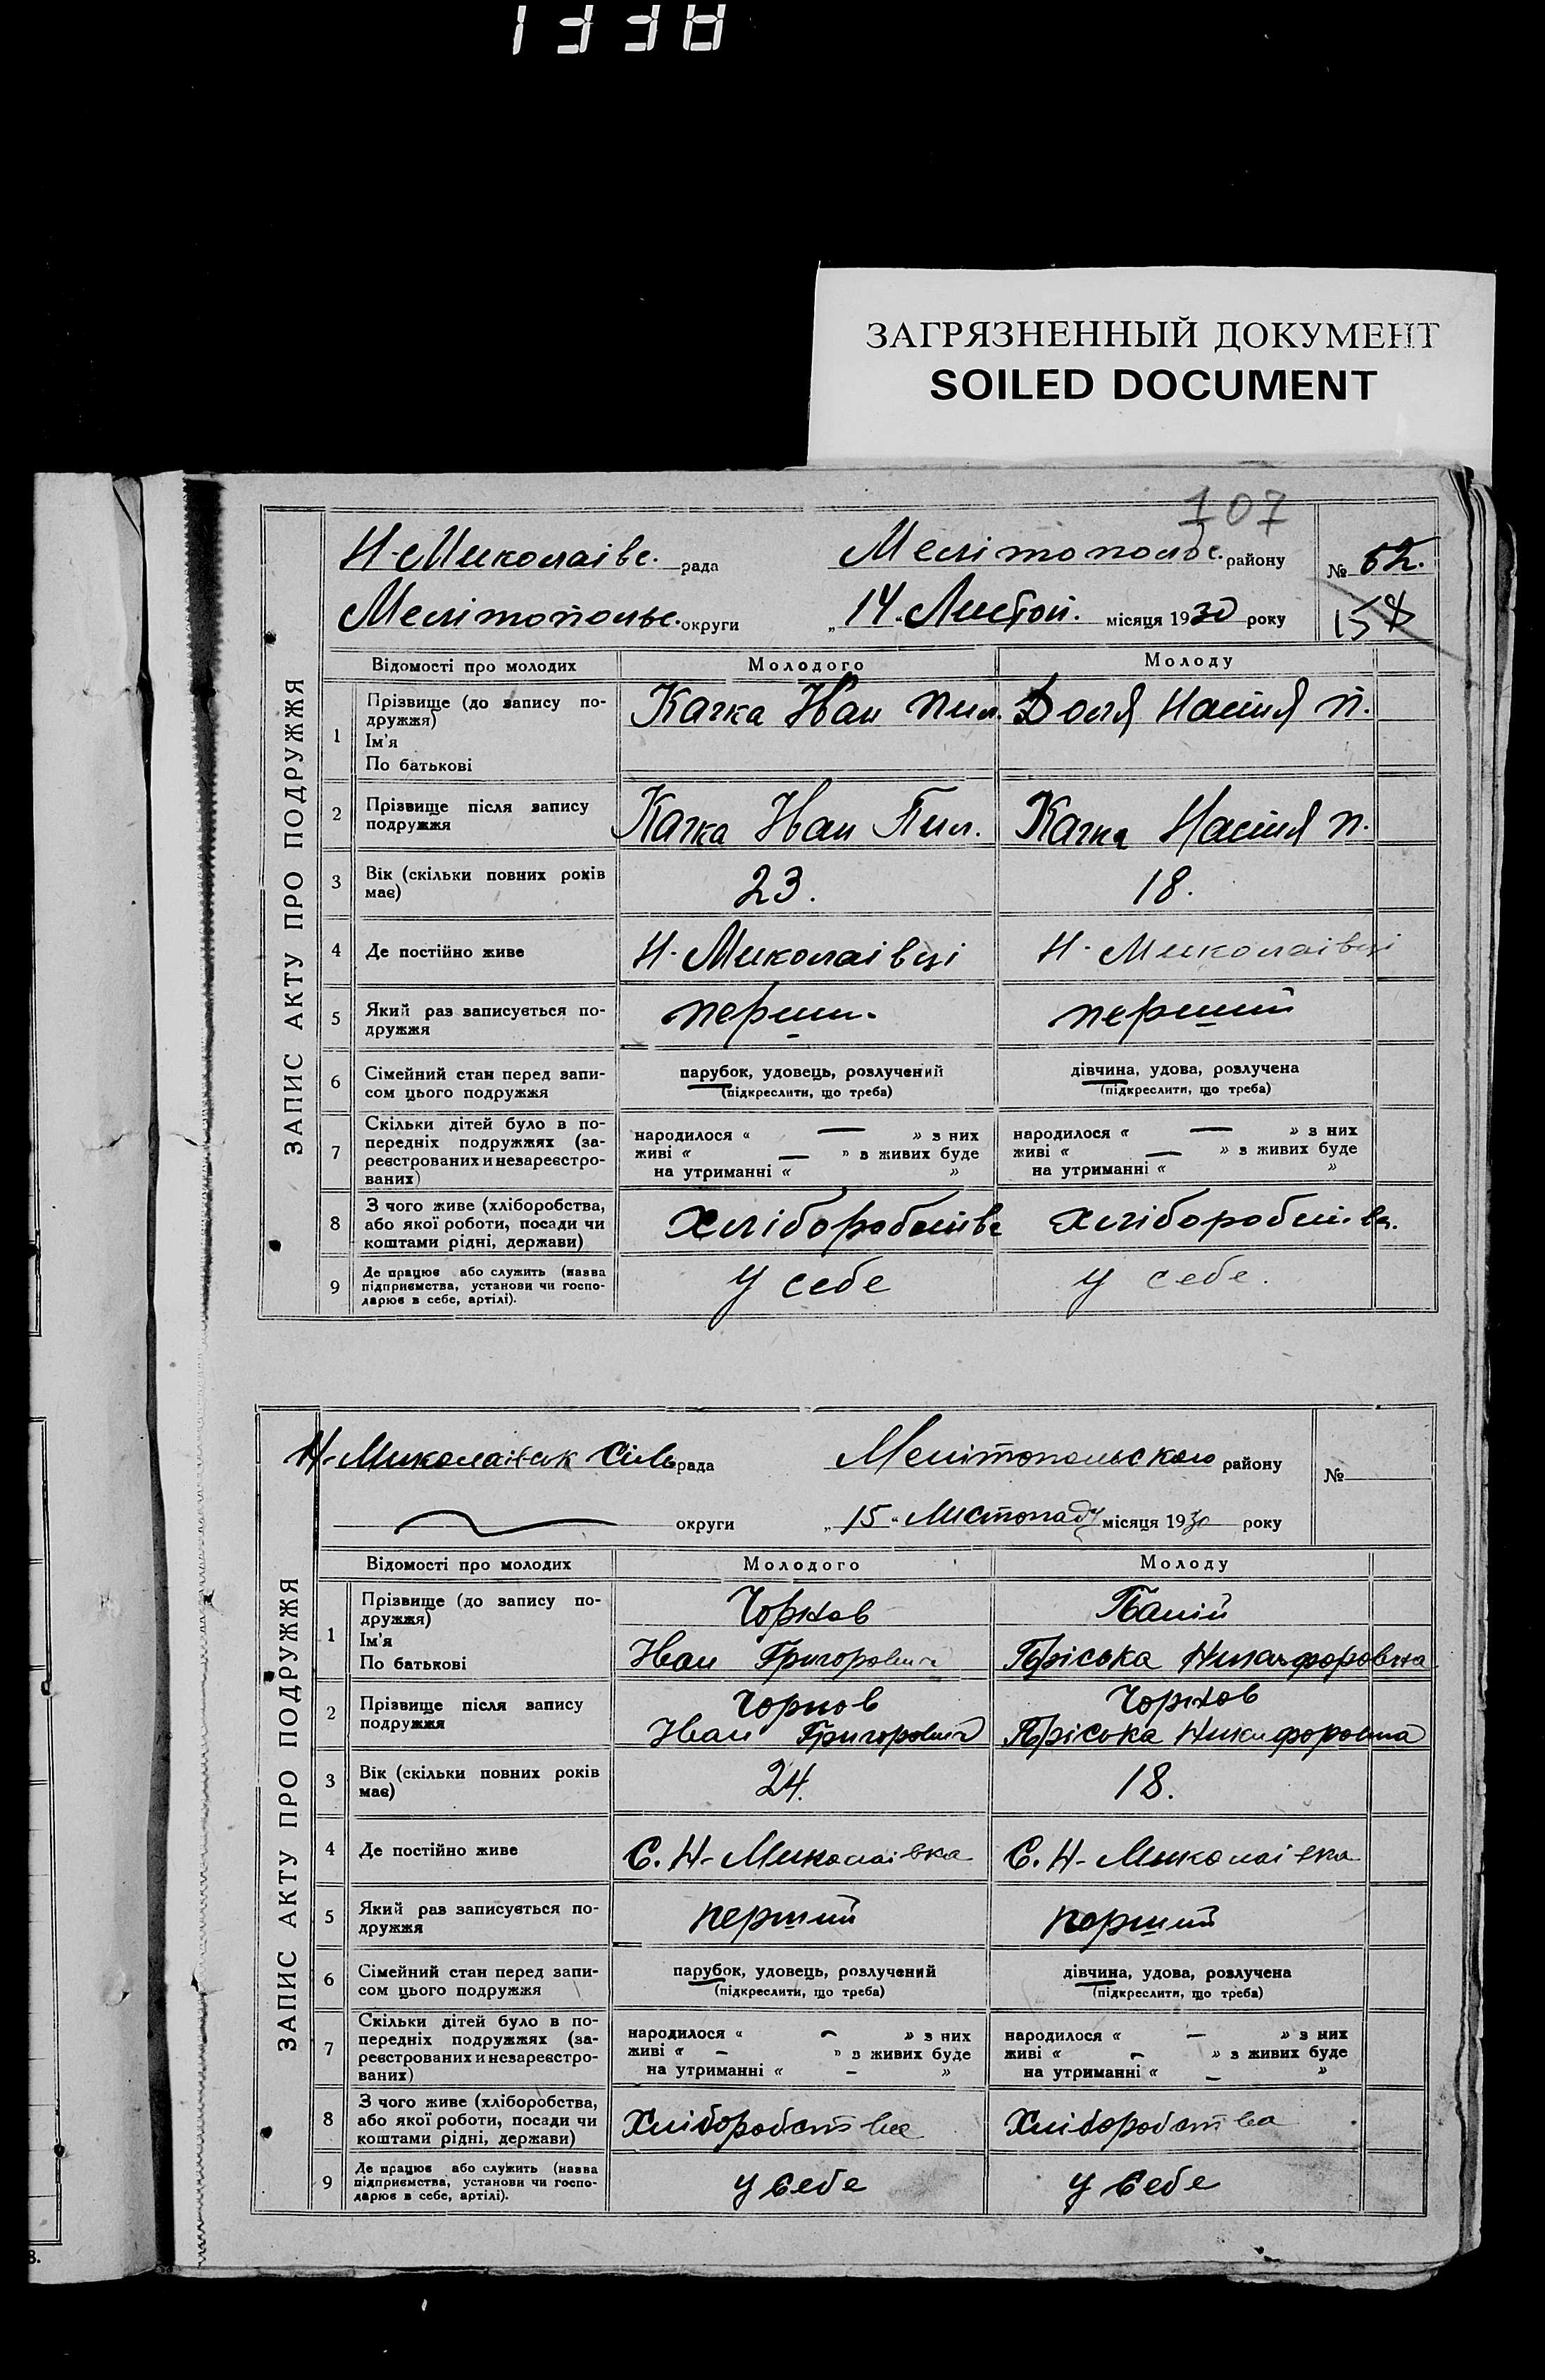 1338
ЗАГРЯЗНЕННЫЙ ДОКУМЕНТ
SOILED DOCUMENT
107
ЗАПИС АКТУ ПРО ПОДРУЖЖЯ
Н-Миколаівс. рада Мелітопольс. району № 62.
Мелітопольс. округи „14“ Листоп. місяця 1930 року
Відомості про молодих Молодого Молоду
1 Прізвище (до запису по-
дружжя)
Ім'я
По батькові
Качка Иван Пил. Доля Настя П.
2 Прізвище після запису
подружжя
Качка Иван Пил. Качка Настя П.
3 Вік (скільки повних років
має)
23. 18.
4 Де постійно живе Н-Миколаівці Н-Миколаівці
5 Який раз записується по-
дружжя
перши- перший
6 Сімейний стан перед запи-
сом цього подружжя
парубок, удовець, розлучений дівчина, удова, розлучена
(підкреслити, що треба) (підкреслити, що треба)
7 Скільки дітей було в по-
передніх подружжях (за-
реєстрованих и незареєстро-
ваних)
народилося « — » з них народилося « — » з них
живі « — » в живих буде живі « — » в живих буде
на утриманні « » на утриманні « »
8 З чого живе (хліборобства,
або якої роботи, посади чи
коштами рідні, держави)
Хліборобства Хліборобства.
9 Де працює або служить (назва
підприємства, установи чи госпо-
дарює в себе, артілі).
У себе У себе.
ЗАПИС АКТУ ПРО ПОДРУЖЖЯ
Н-Миколаівск Сіль рада Мелітопольского району №
округи „15“ Листопаду місяця 1930 року
Відомості про молодих Молодого Молоду
1 Прізвище (до запису по-
дружжя)
Ім'я
По батькові
Чорнов
Иван Григорович Пріська Никифоровна
2 Прізвище після запису
подружжя
Чорнов Чорнов
Иван Григорович Пріська Никифоровна
3 Вік (скільки повних років
має)
24. 18.
4 Де постійно живе С. Н-Миколаівка С. Н-Миколаівка
5 Який раз записується по-
дружжя
перший перший
6 Сімейний стан перед запи-
сом цього подружжя
парубок, удовець, розлучений дівчина, удова, розлучена
(підкреслити, що треба) (підкреслити, що треба)
7 Скільки дітей було в по-
передніх подружжях (за-
реєстрованих и незареєстро-
ваних)
народилося « – » з них народилося « – » з них
живі « – » в живих буде живі « – » в живих буде
на утриманні « – » на утриманні « – »
8 З чого живе (хліборобства,
або якої роботи, посади чи
коштами рідні, держави)
Хліборобства Хліборобства
9 Де працює або служить (назва
підприємства, установи чи госпо-
дарює в себе, артілі).
У себе У себе